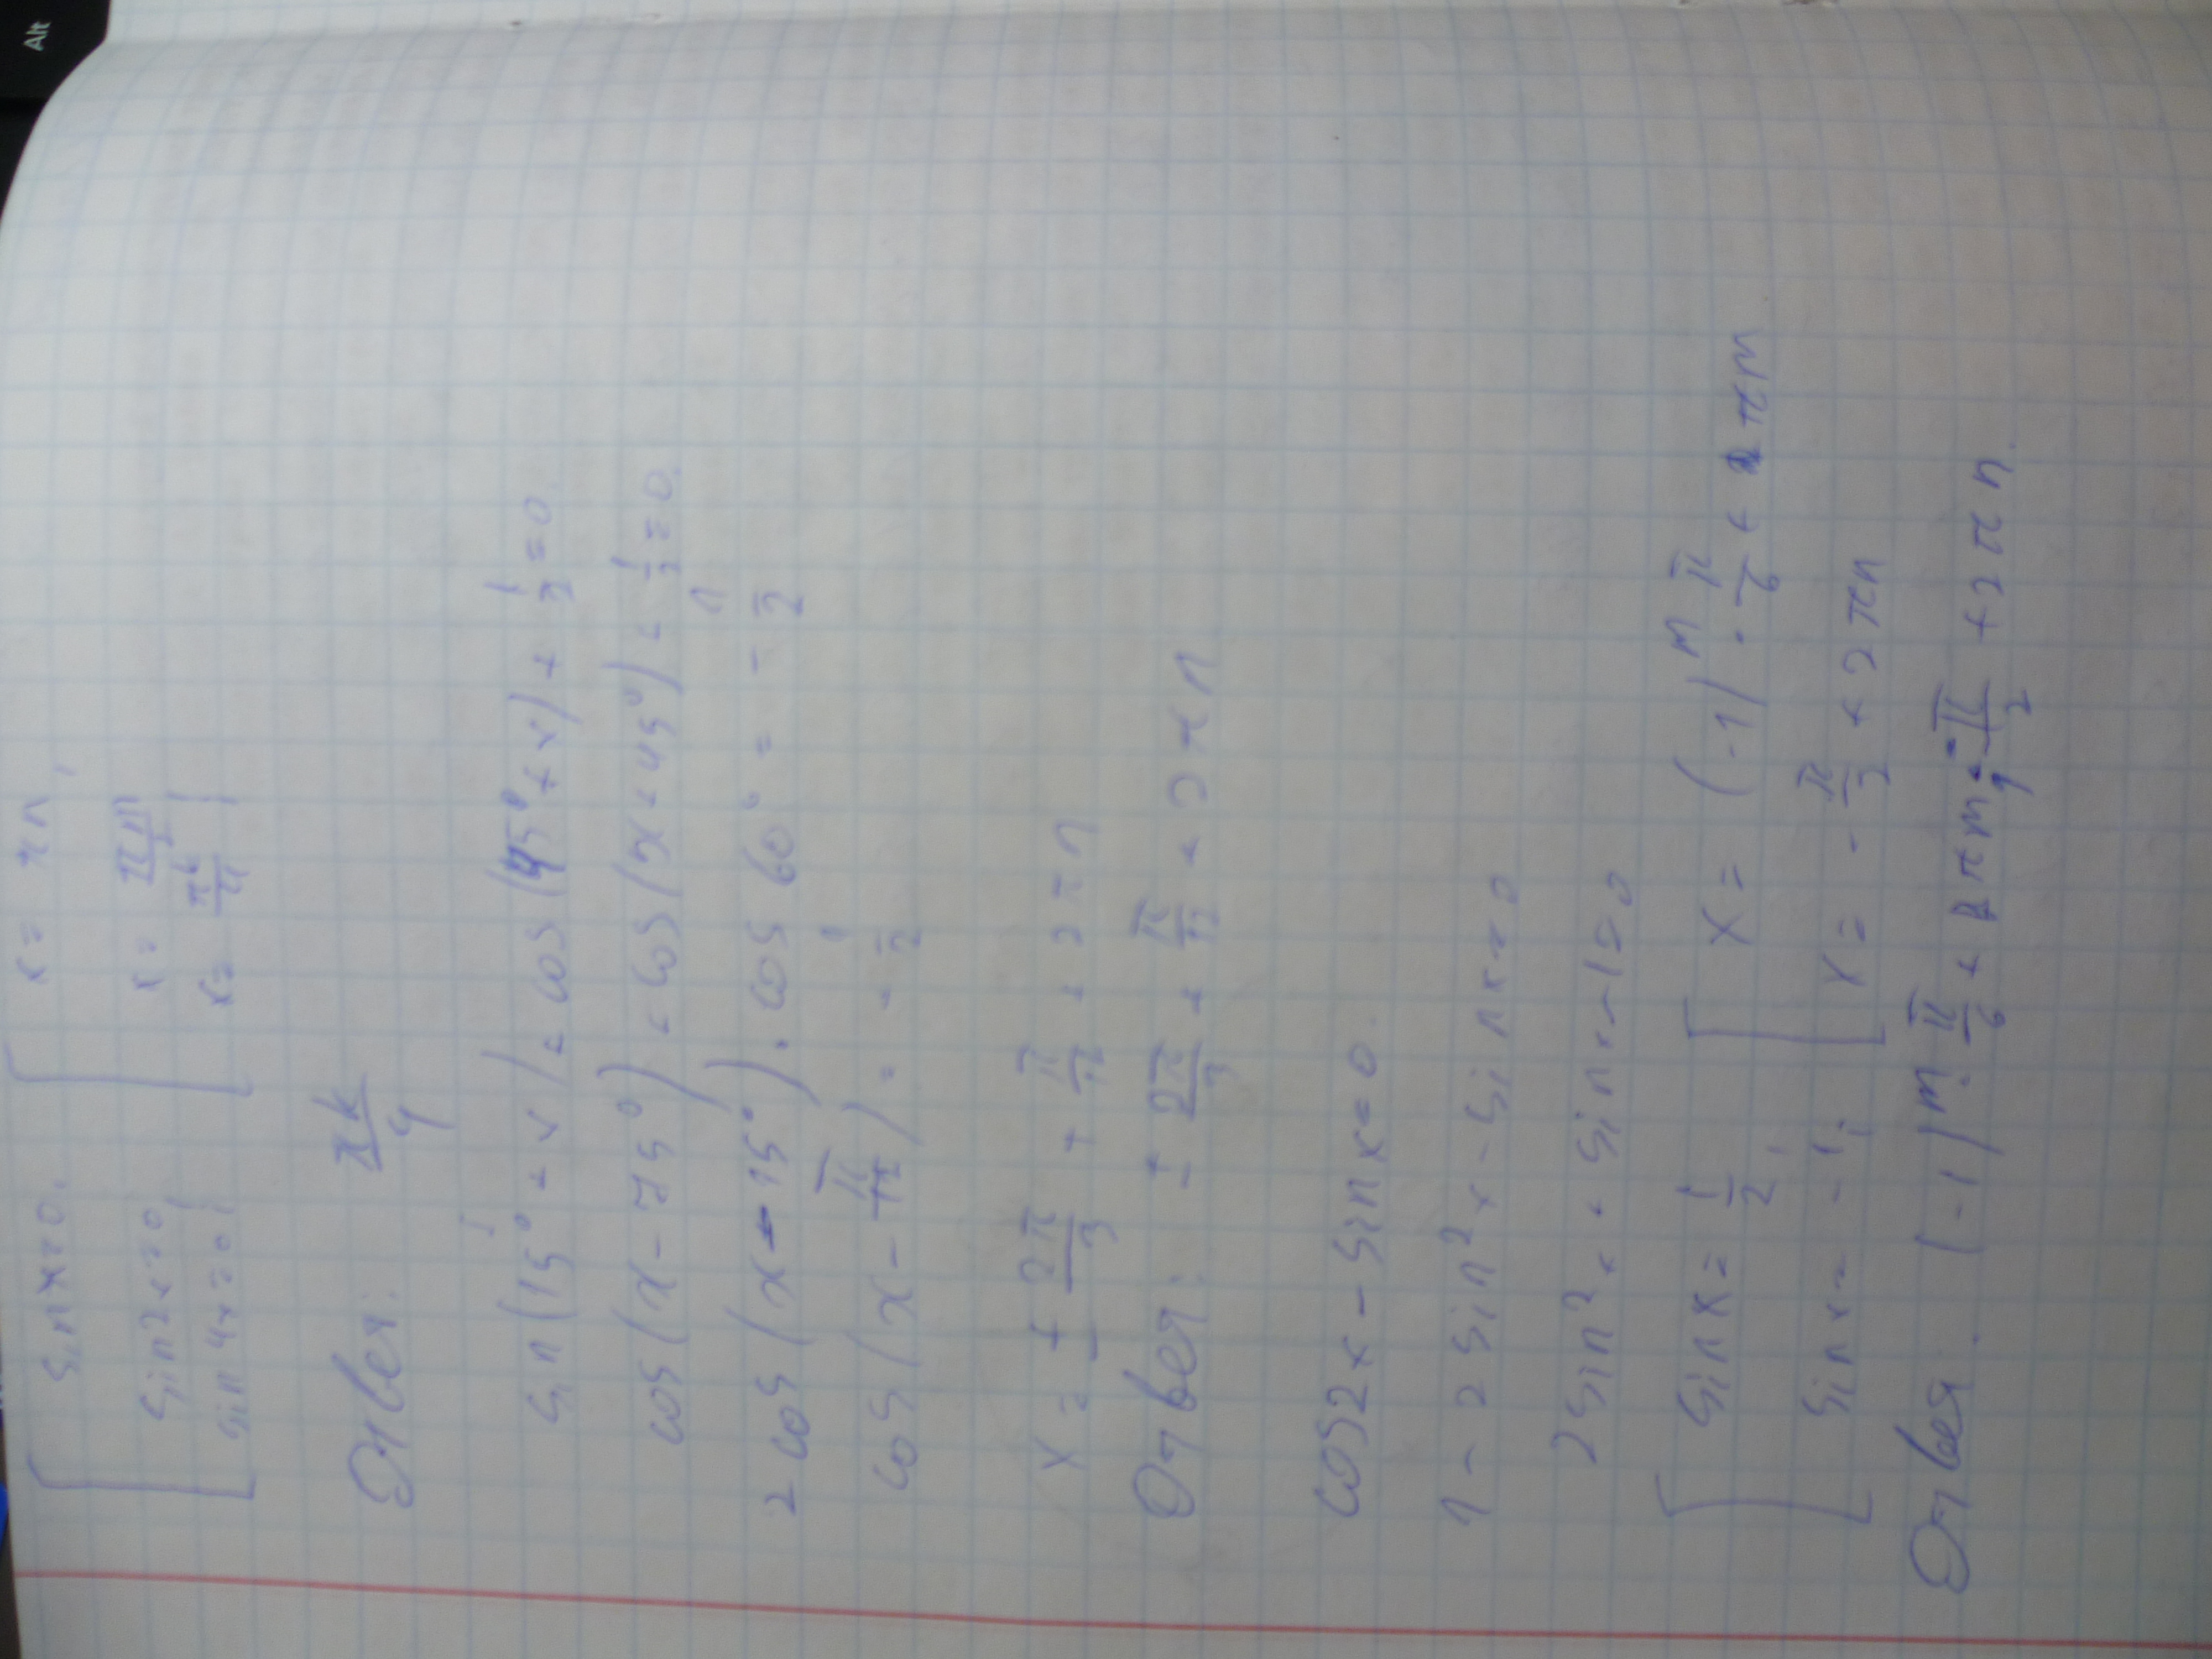 sin x = 0, x = πn,
sin 2x = 0 x = πm/2
sin 4x = 0; x = πk/4
Ответ: πk/4
sin(15° + x) + cos(45° + x) + 1/2 = 0.
cos(x - 75°) + cos(x + 45°) + 1/2 = 0.
2 cos(x - 15°) · cos 60° = - 1/2
cos(x - π/12) = - 1/2
x = ± 2π/3 + π/12 + 2πn
Ответ: ± 2π/3 + π/12 + 2πn
cos 2x - sin x = 0.
1 - 2 sin² x - sin x = 0
2 sin² x + sin x - 1 = 0
sin x = 1/2, x = (-1)^m · π/6 + πm
sin x = -1; x = - π/2 + 2πn
Ответ: (-1)^m · π/6 + πm, - π/2 + 2πn.
Alt